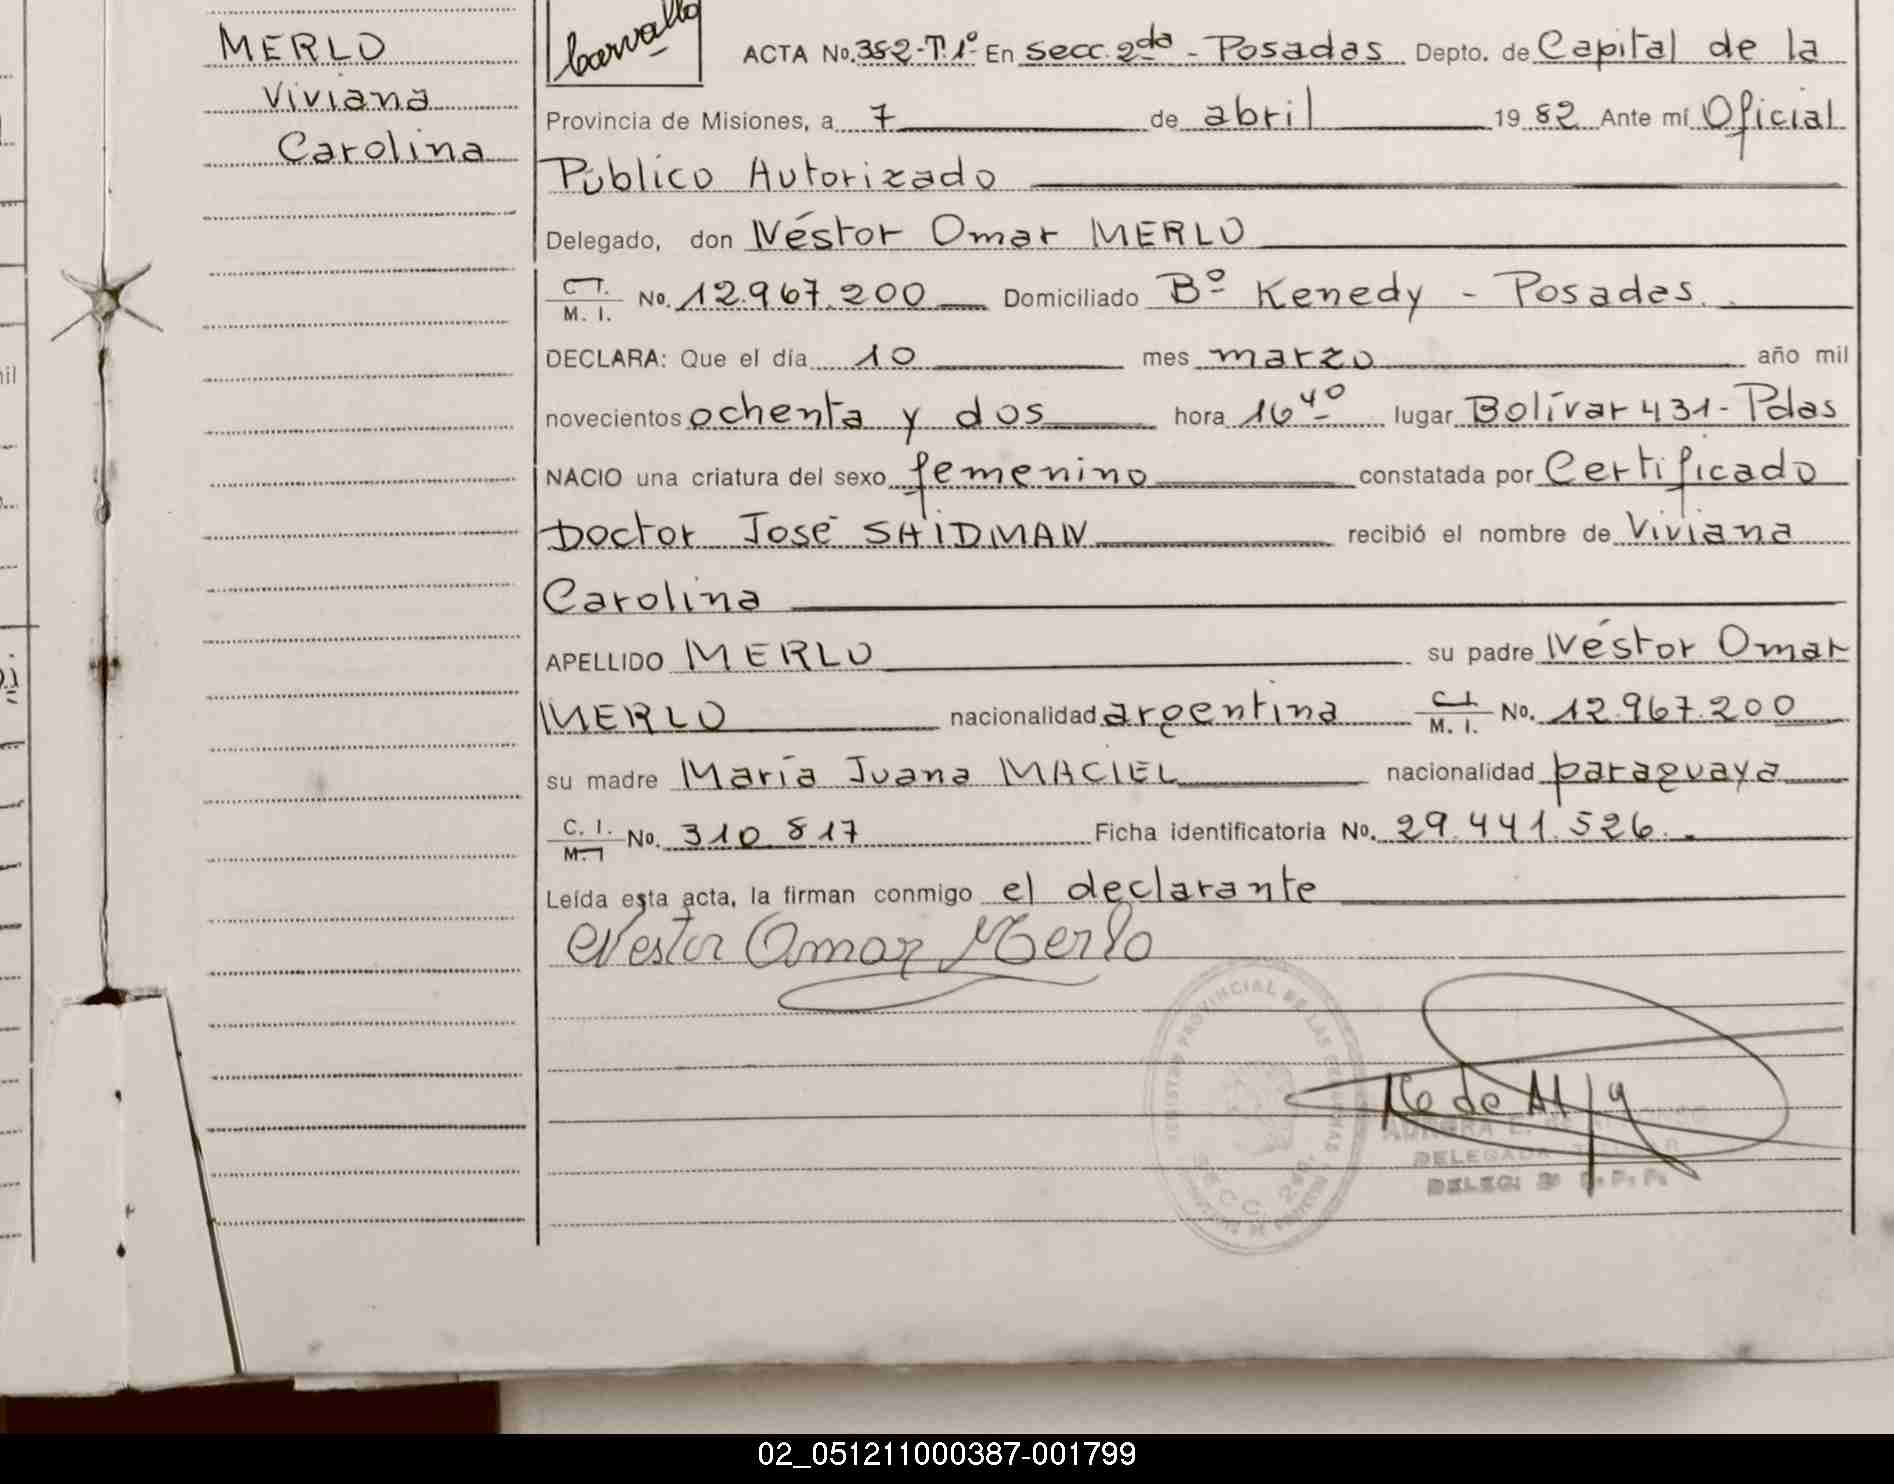 MERLO
Viviana
Carolina
Carvallo
ACTA No. 352-T.1º En secc. 2da - Posadas Depto. de Capital de la
Provincia de Misiones, a 7 de abril 1982 Ante mí Oficial
Público Autorizado
Delegado, don Néstor Omar MERLO
C.I. / M. I. No. 12.967.200 Domiciliado Bº Kenedy - Posadas.
DECLARA: Que el día 10 mes marzo año mil
novecientos ochenta y dos hora 16 40 lugar Bolívar 431 - Pdas
NACIO una criatura del sexo femenino constatada por Certificado
Doctor José SHIDMAN recibió el nombre de Viviana
Carolina
APELLIDO MERLO su padre Néstor Omar
MERLO nacionalidad argentina C.I. / M. I. No. 12.967.200
su madre María Juana MACIEL nacionalidad paraguaya
C. I. / M. I. No. 310.817 Ficha identificatoria No. 29.441.526.
Leída esta acta, la firman conmigo el declarante
Nestor Omar Merlo
REGISTRO PROVINCIAL DE LAS PERSONAS
SECC. 2da.
DELEGADA TITULAR
02_051211000387-001799